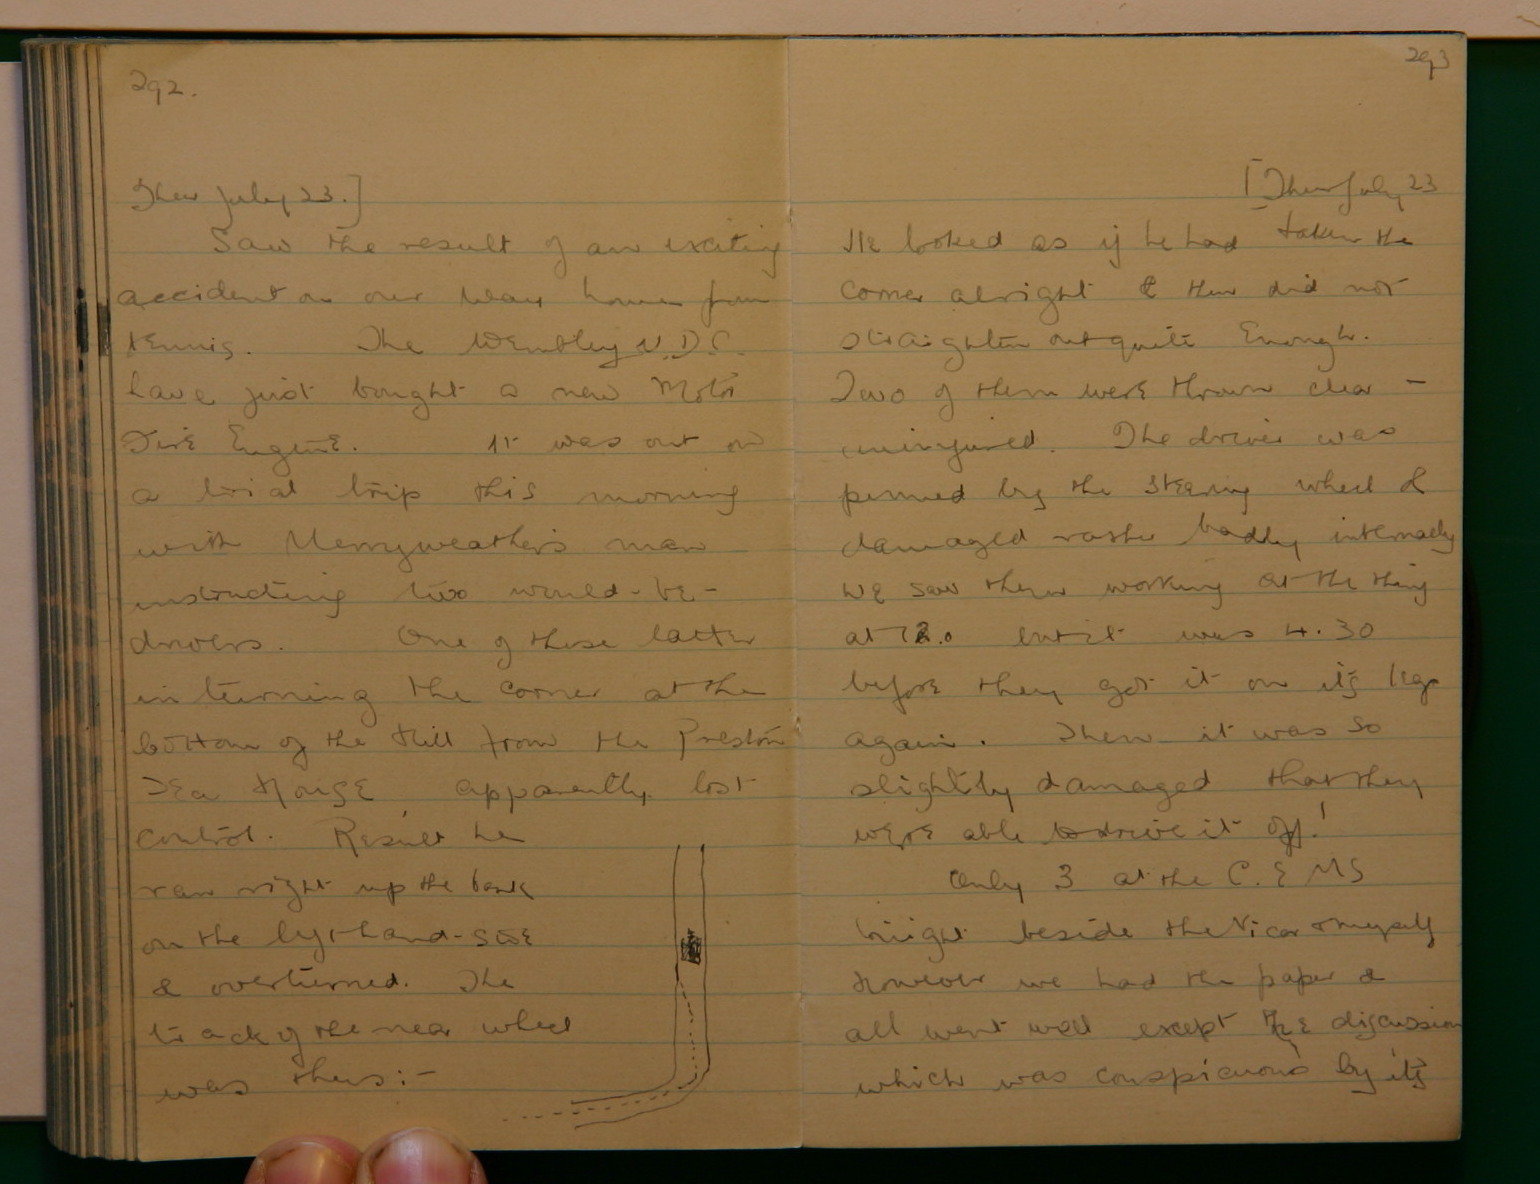 292.
Thur July 23.]
Saw the result of an exciting
accident on our way home from
tennis. The Wembley U.D.C.
have just bought a new Motor
Fire Engine. It was out on
a trial trip this morning
with Merryweather's man
instructing two would-be-
drivers. One of these latter
in turning the corner at the
bottom of the Hill from the Preston
Tea House apparently lost
control. Result he
ran right up the bank
on the left hand-side
& overturned. The
track of the near wheel
was thus:-
293
[Thur July 23
He looked as if he had taken the
corner alright & then did not
straighten out quite enough.
Two of them were thrown clear -
uninjured. The driver was
pinned by the steering wheel &
damaged rather badly internally
We saw them working at the thing
at 12.0 but it was 4.30
before they got it on its legs
again. Then it was so
slightly damaged that they
were able to drive it off!
Only 3 at the C.E.M.S
tonight beside the Vicar & myself
However we had the paper &
all went well except the discussion
which was conspicuous by its